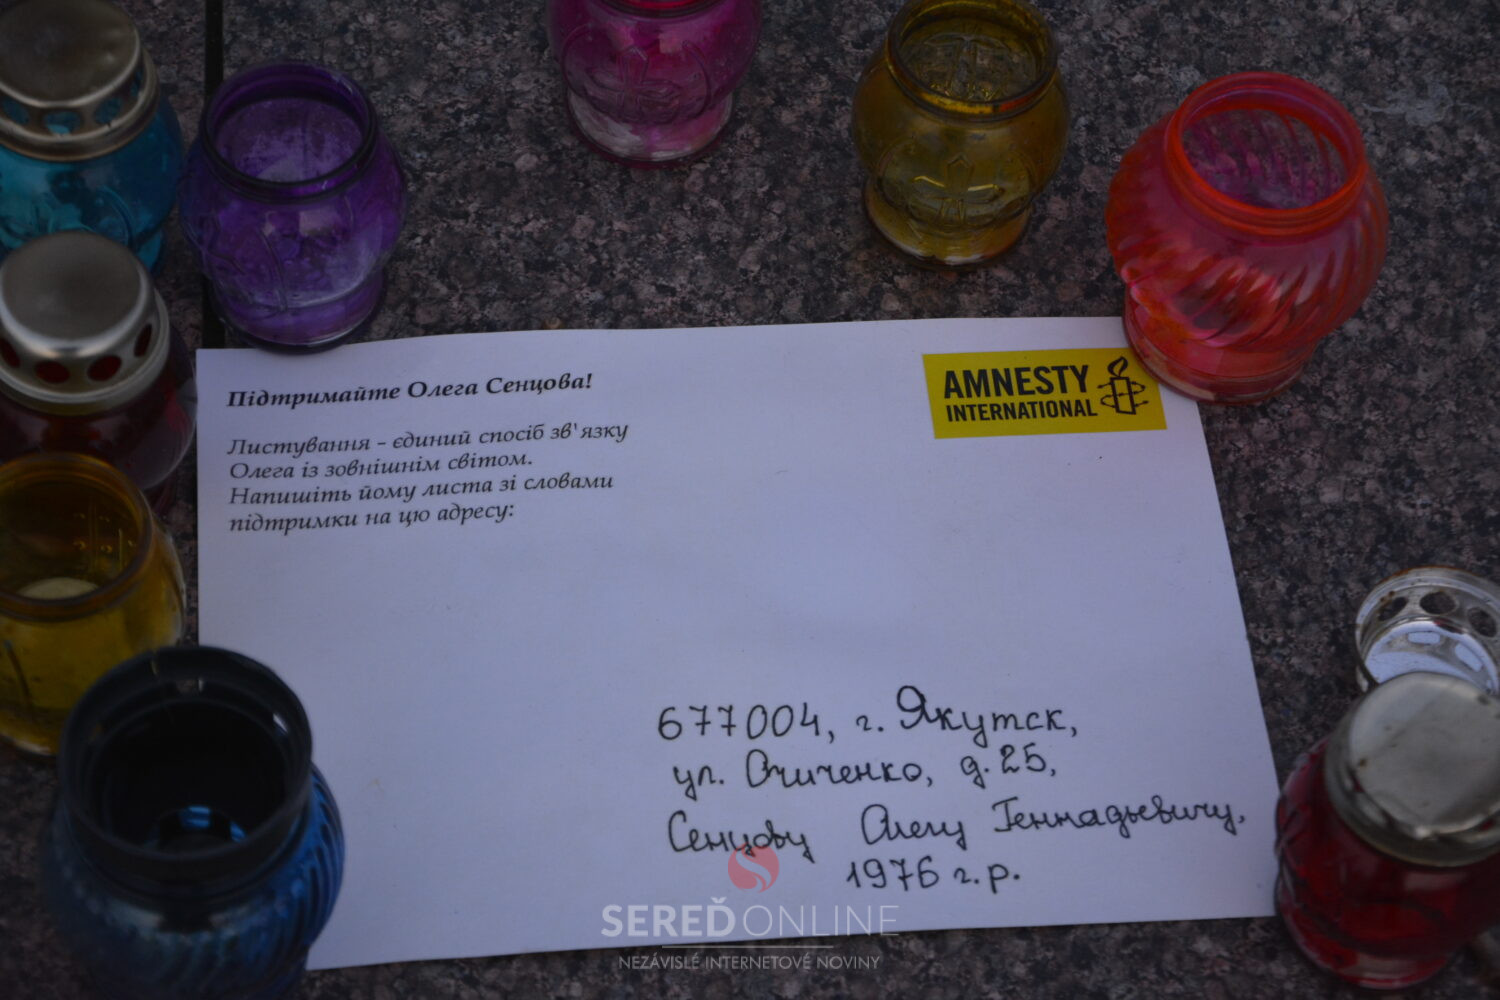 Підтримайте Олега Сенцова!
Листування - єдиний спосіб зв'язку
Олега із зовнішнім світом.
Напишіть йому листа зі словами
підтримки на цю адресу:
AMNESTY
INTERNATIONAL
677004, г. Якутск,
ул. Очиченко, д. 25,
Сенцову Олегу Геннадьевичу,
1976 г.р.
SEREĎONLINE
NEZÁVISLÉ INTERNETOVÉ NOVINY